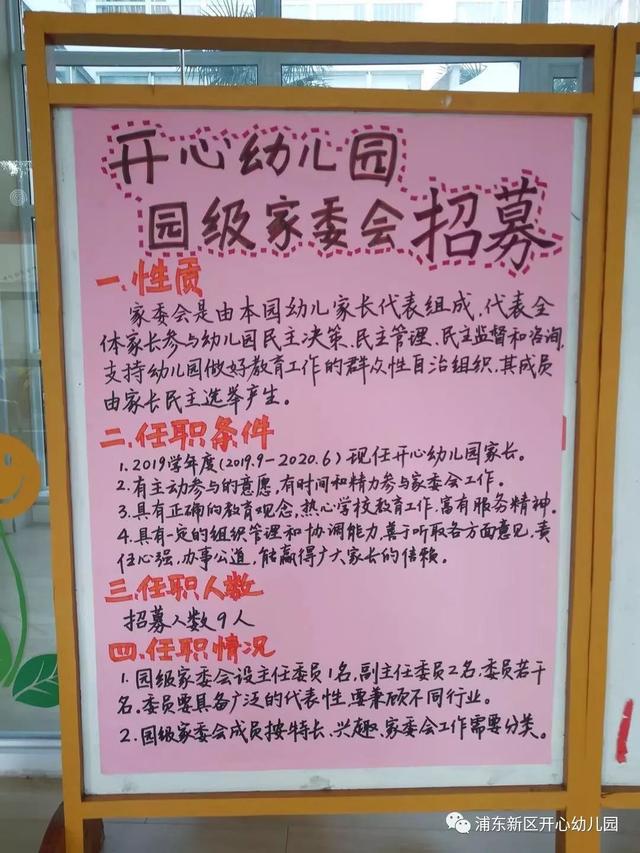 开心幼儿园
园级家委会招募
一.性质
家委会是由本园幼儿家长代表组成，代表全
体家长参与幼儿园民主决策、民主管理、民主监督和咨询，
支持幼儿园做好教育工作的群众性自治组织，其成员
由家长民主选举产生。
二.任职条件
1.2019学年度(2019.9-2020.6)现任开心幼儿园家长。
2.有主动参与的意愿，有时间和精力参与家委会工作。
3.具有正确的教育观念，热心学校教育工作，富有服务精神。
4.具有一定的组织管理和协调能力，善于听取各方面意见，责
任心强，办事公道，能赢得广大家长的信赖。
三.任职人数
招募人数9人
四.任职情况
1.园级家委会设主任委员1名，副主任委员2名，委员若干
名。委员要具备广泛的代表性，要兼顾不同行业。
2.园级家委会成员按特长、兴趣、家委会工作需要分类。
浦东新区开心幼儿园